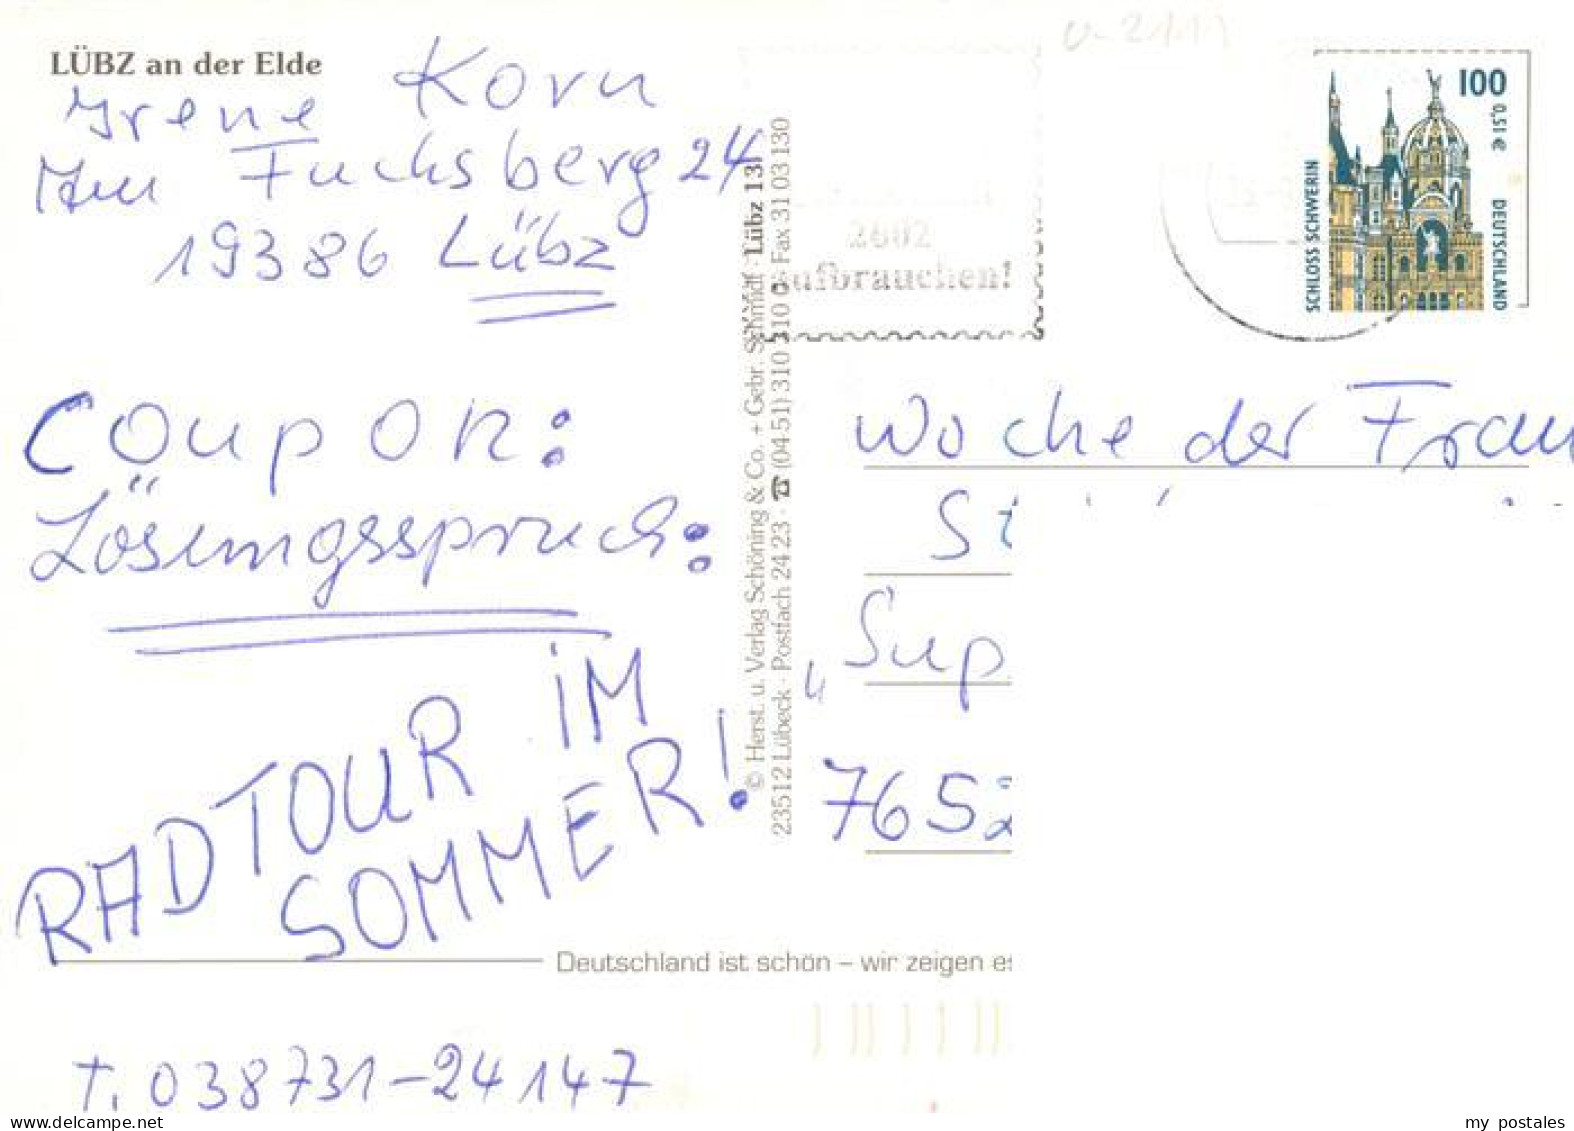 LÜBZ an der Elde
Irene Korn
Am Fuchsberg 24
19386 Lübz
Coupon:
Lösungsspruch:
RADTOUR iM
SOMMER!
T. 038731-24147
© Herst. u. Verlag Schöning & Co. + Gebr. Schmidt · Lübz 13
23512 Lübeck · Postfach 24 23 · ☎ (04 51) 310 310 · Fax 31 03 130
2002
aufbrauchen!
100
0,51 €
SCHLOSS SCHWERIN
DEUTSCHLAND
Woche der Frau
„Sup
7652
Deutschland ist schön – wir zeigen es
my postales